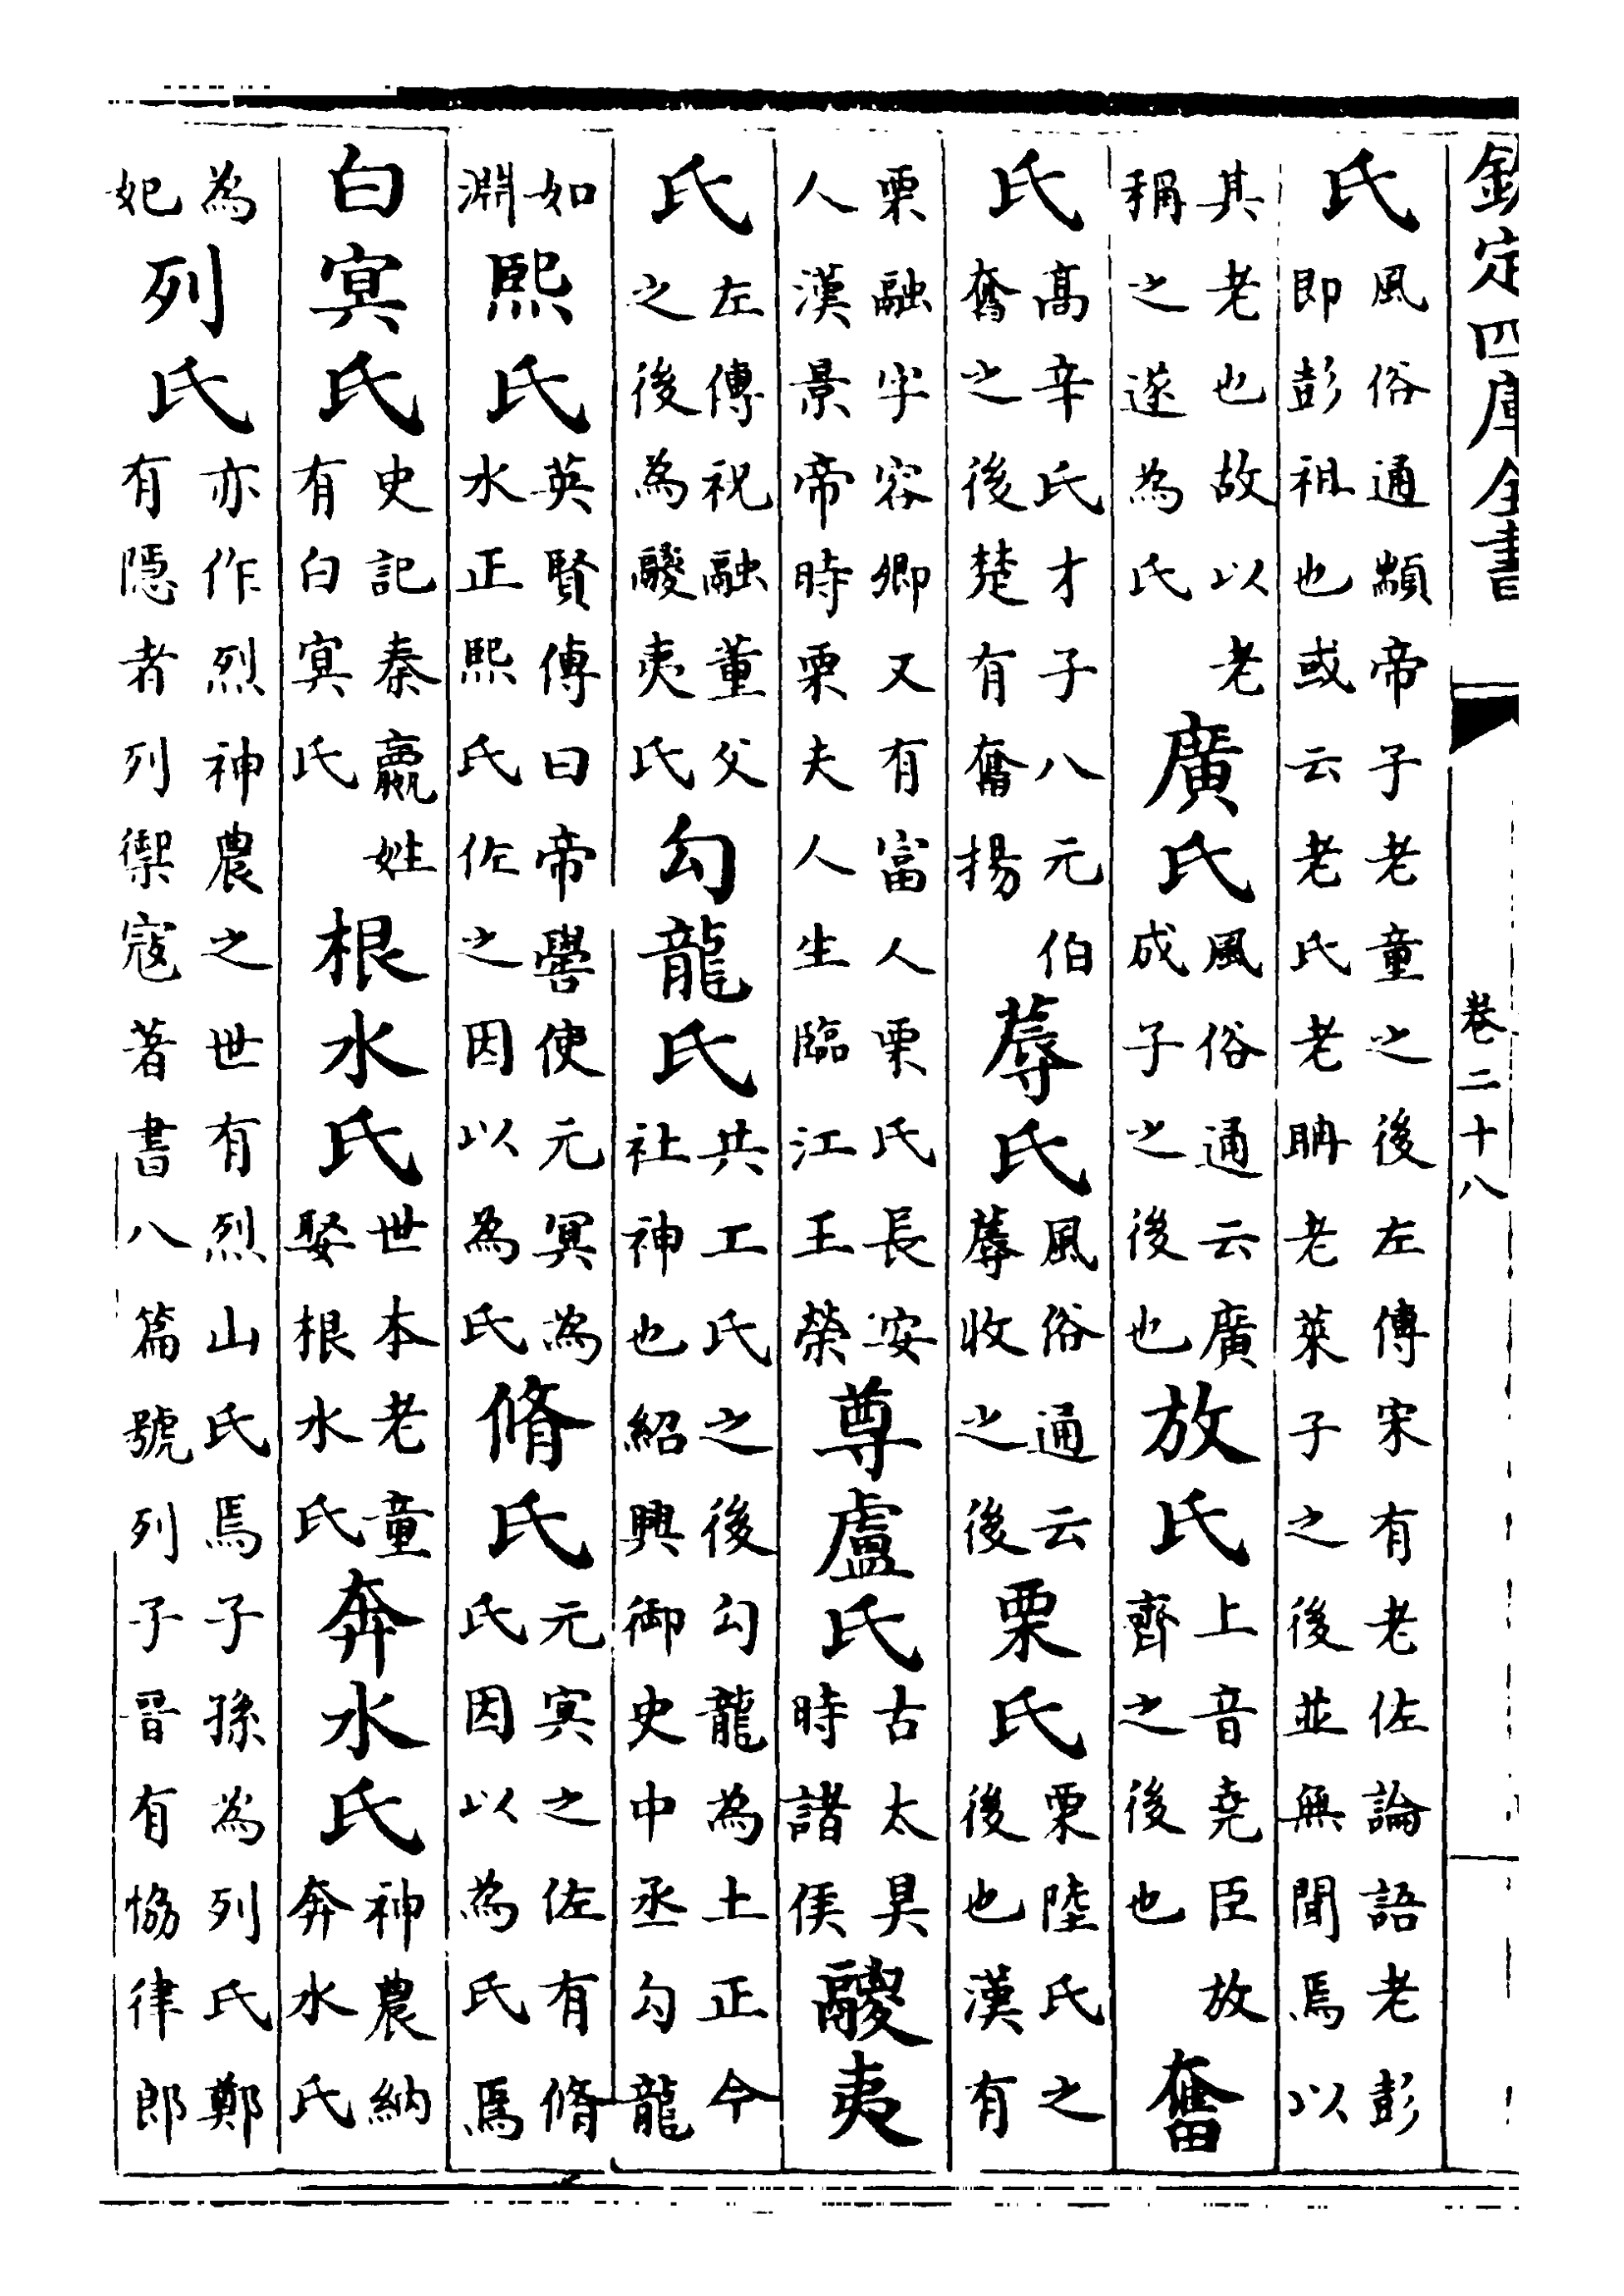 欽定四庫全書 卷二十八
氏
風俗通顓帝子老童之後左傳宋有老佐論語老彭
即彭祖也或云老氏老聃老萊子之後並無聞焉以
其老也故以老
稱之遂為氏
廣氏
風俗通云廣
成子之後也
放氏
上音堯臣放
齊之後也
奮
氏
高辛氏才子八元伯
奮之後楚有奮揚
蓐氏
風俗通云
蓐收之後
栗氏
栗陸氏之
後也漢有
栗融字容卿又有富人栗氏長安
人漢景帝時栗夫人生臨江王榮
尊盧氏
古太昊
時諸侯
鬷夷
氏
左傳祝融董父
之後為鬷夷氏
勾龍氏
共工氏之後勾龍為土正今
社神也紹興御史中丞勾龍
如
淵
熙氏
英賢傳曰帝嚳使元冥為
水正熙氏佐之因以為氏
脩氏
元冥之佐有脩
氏因以為氏焉
白冥氏
史記秦嬴姓
有白冥氏
根水氏
世本老童
娶根水氏
奔水氏
神農納
奔水氏
為
妃
列氏
亦作烈神農之世有烈山氏焉子孫為列氏鄭
有隱者列禦寇著書八篇號列子晉有恊律郎